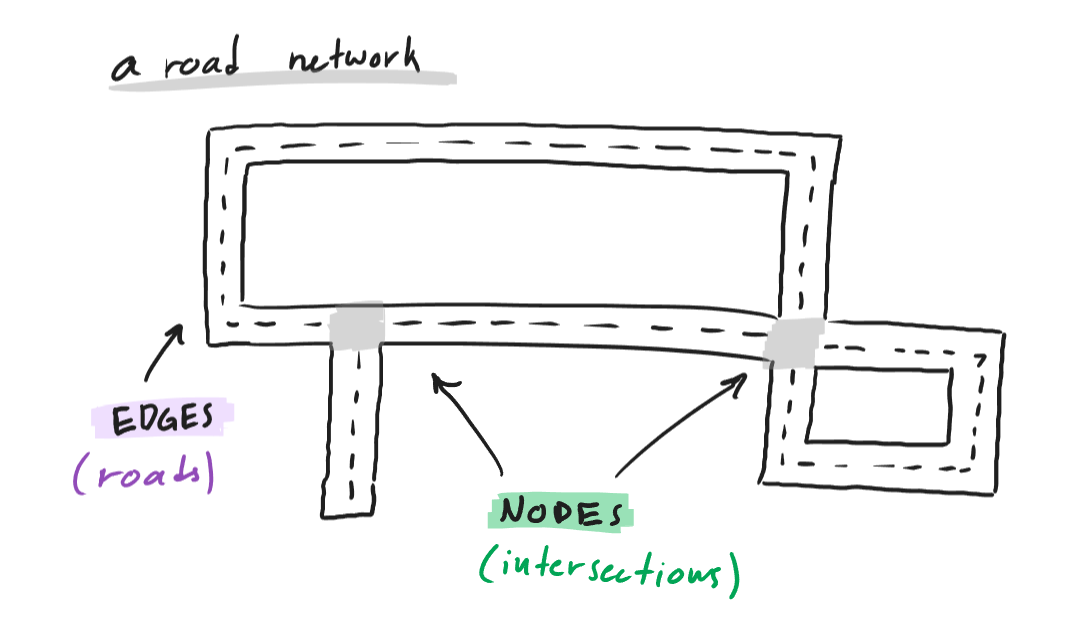 a road network
EDGES
(roads)
NODES
(intersections)